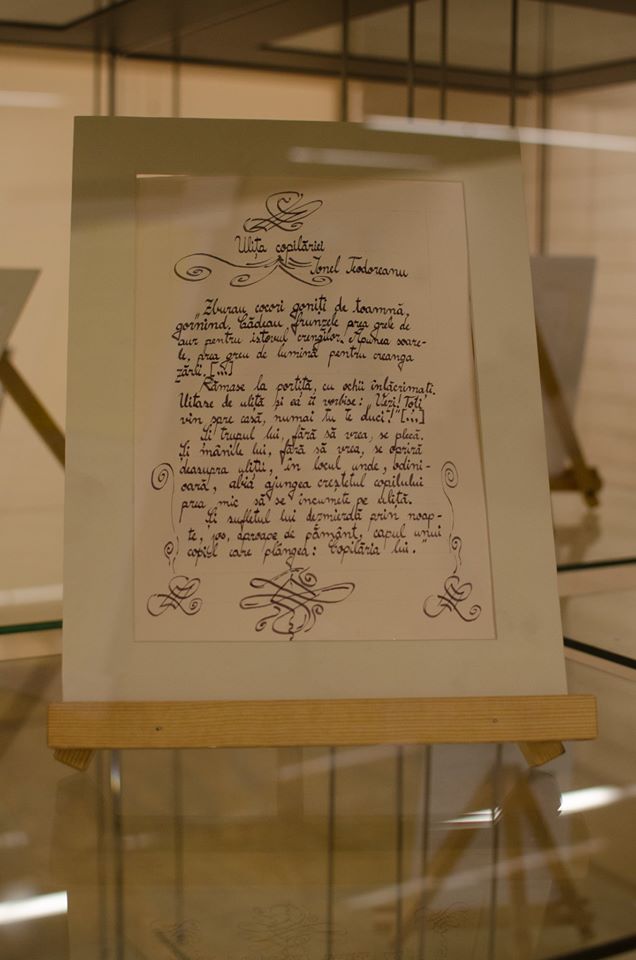 Ulița copilăriei
Ionel Teodoreanu
„Zburau cocori goniți de toamnă,
gornind. Cădeau frunzele prea grele de
aur pentru istovul crengilor. Apunea soare-
le, prea greu de lumină pentru creanga
zării. [...]
Rămase la portiță, cu ochii înlăcrimați.
Uitase de uliță și ea îi vorbise: „Vezi! Toți
vin spre casă, numai tu te duci!" [...]
Și trupul lui, fără să vrea, se plecă.
Și mânile lui, fără să vrea, se opriră
deasupra uliții, în locul unde, odini-
oară, abia ajungea creștetul copilului
prea mic să se încumete pe uliță.
Și sufletul lui dezmierdă prin noap-
te, jos, aproape de pământ, capul unui
copil care plângea: Copilăria lui."